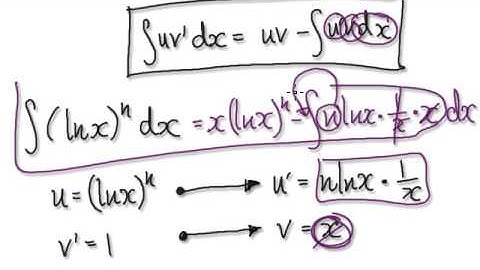 ∫uv'dx = uv - ∫vu'dx
∫(lnx)ⁿ dx = x(lnx)ⁿ - ∫ n lnx · 1/x · x dx
u = (lnx)ⁿ → u' = n lnx · 1/x
v' = 1 → v = x